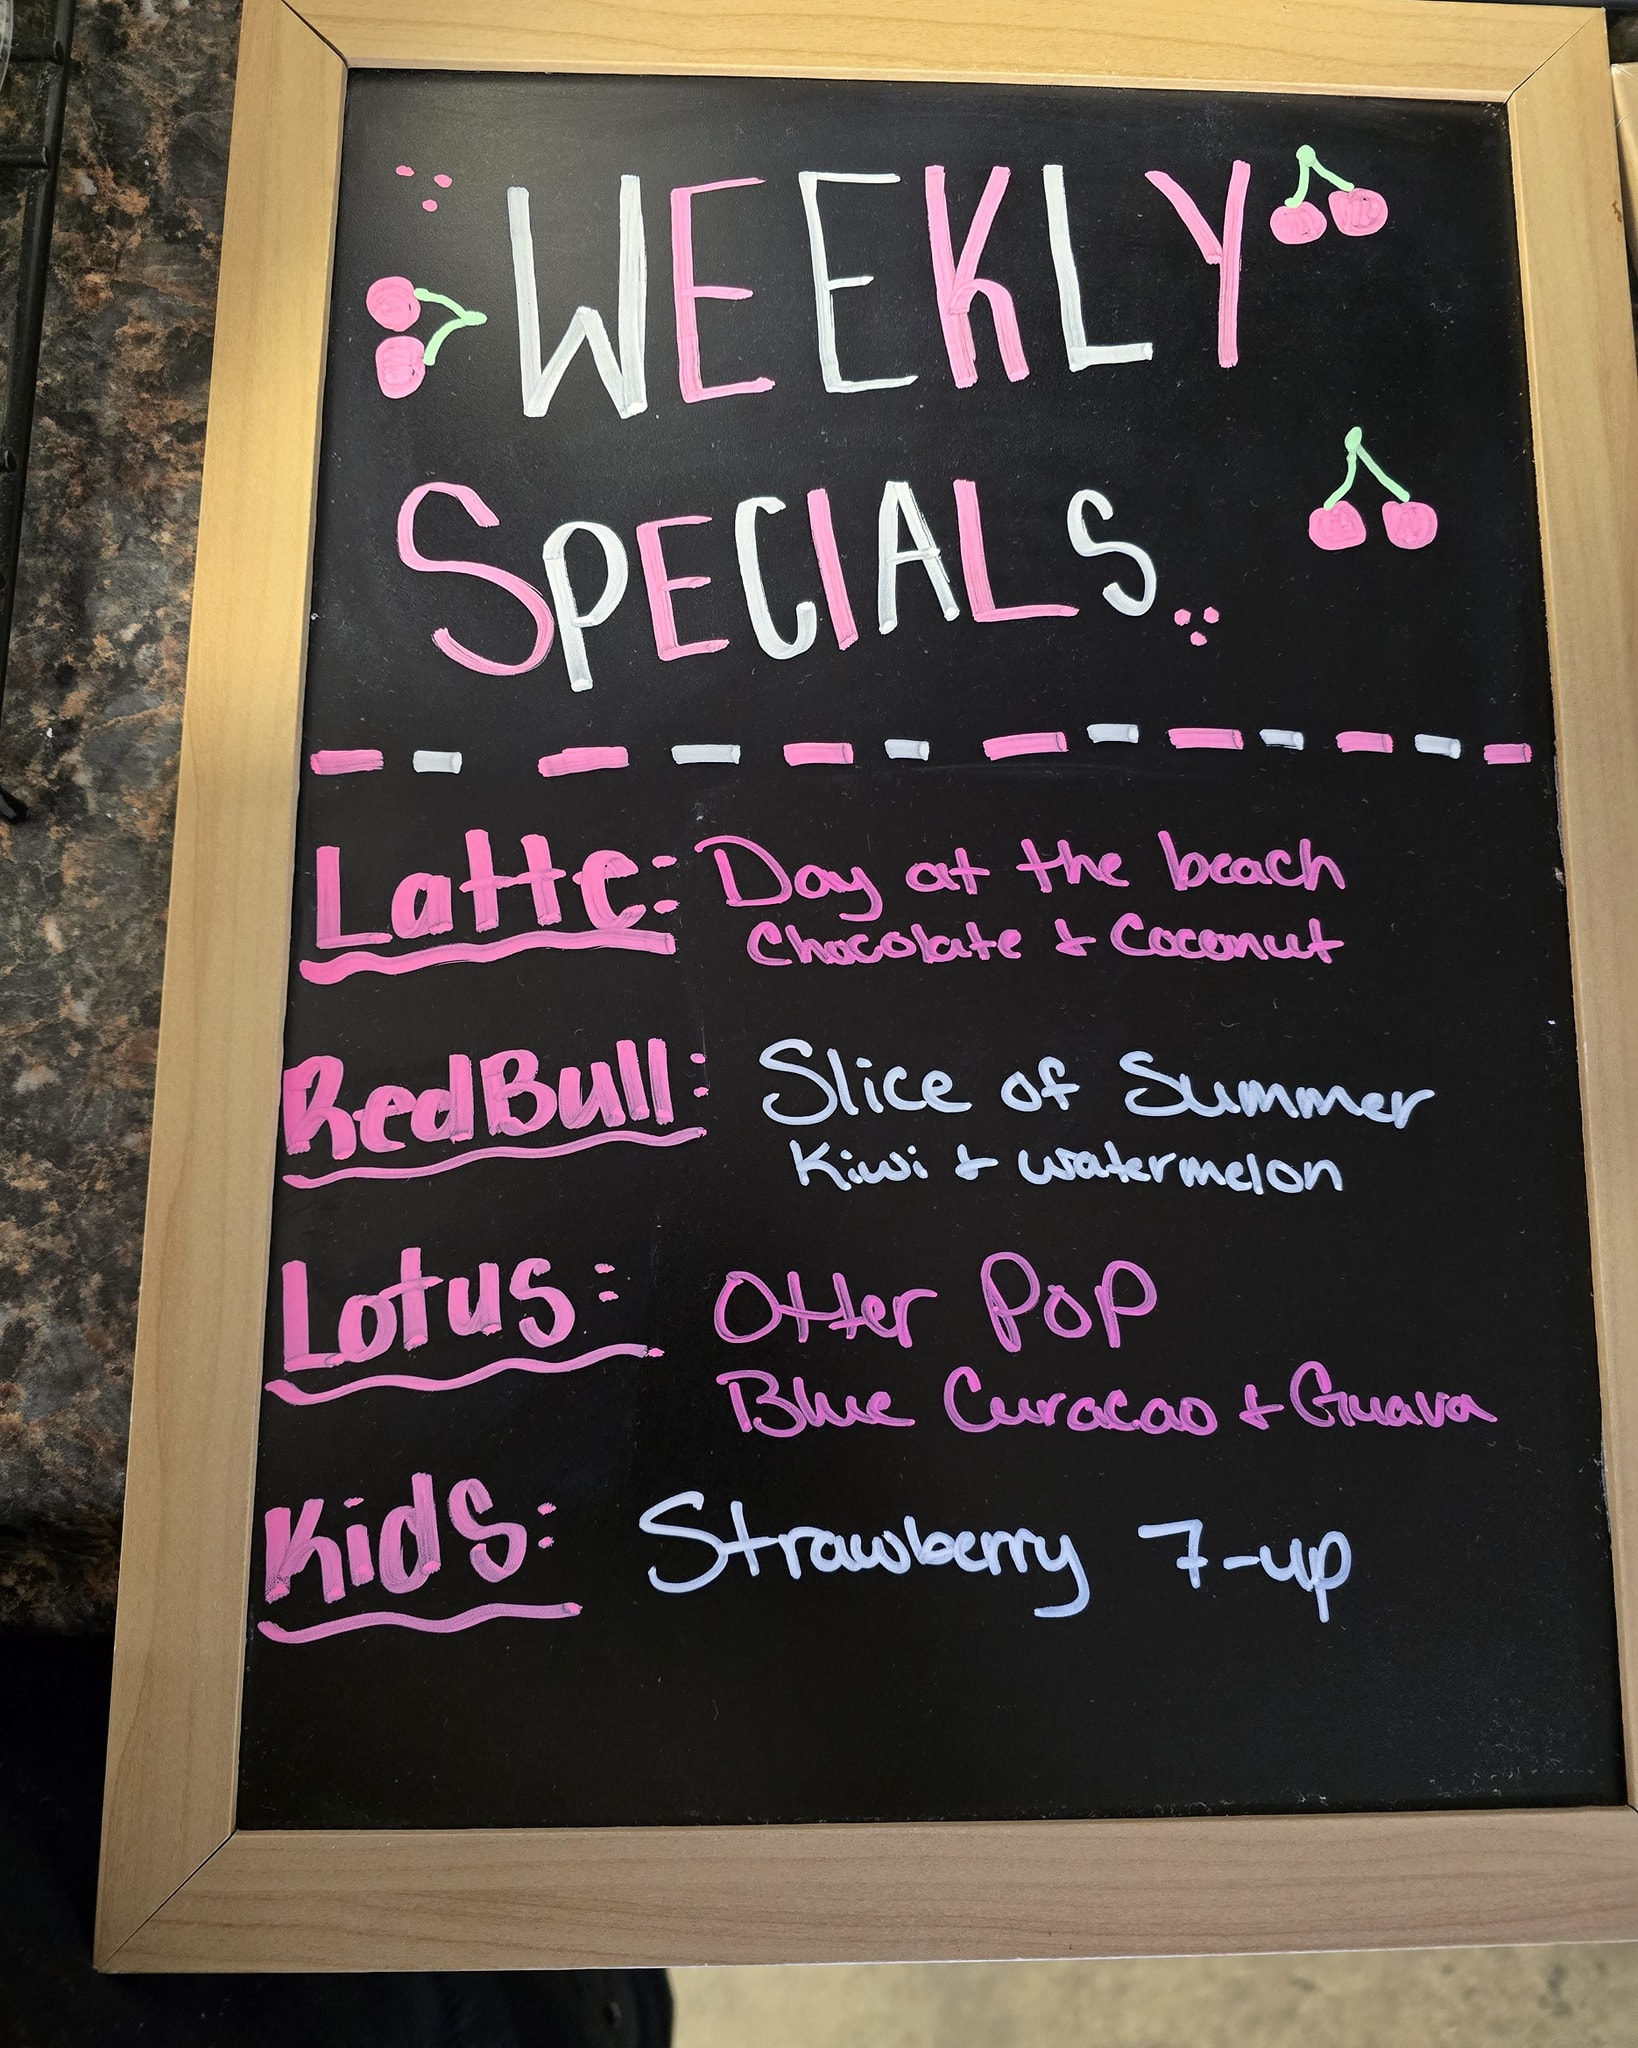 WEEKLY
SPECIALS
Latte: Day at the beach
Chocolate + Coconut
RedBull: Slice of Summer
Kiwi + watermelon
Lotus: Otter Pop
Blue Curacao + Guava
Kids: Strawberry 7-up